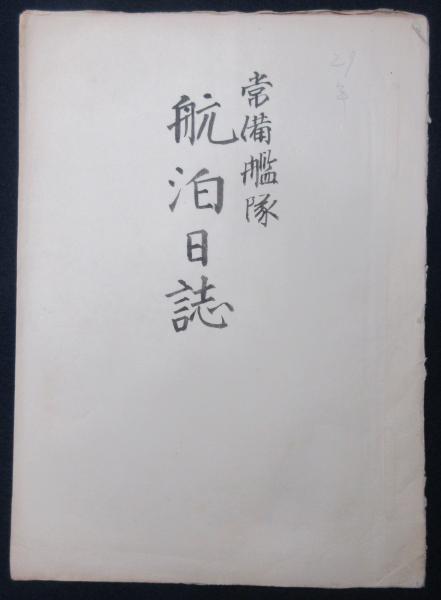 29年
常備艦隊
航泊日誌